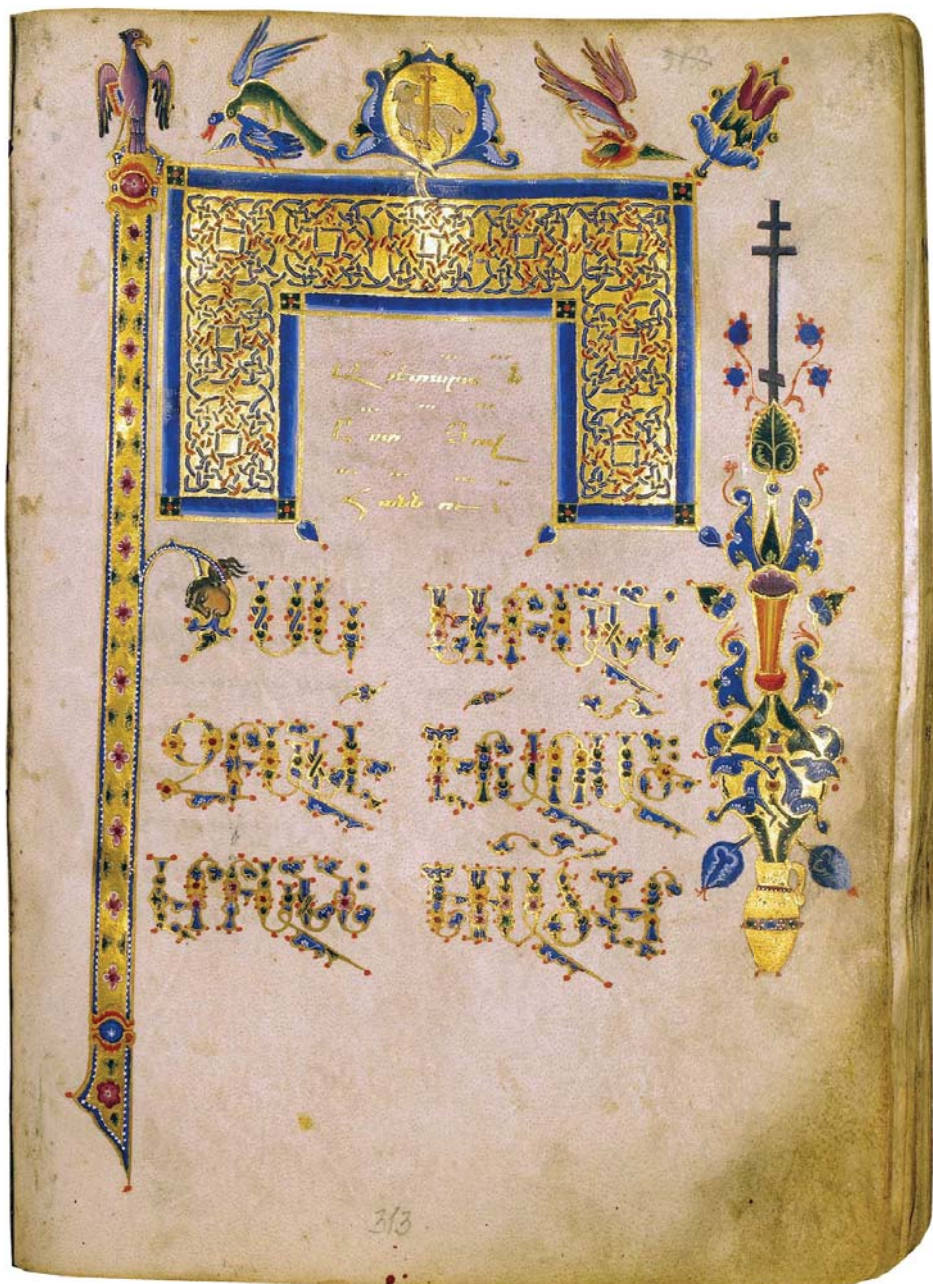 Աւետարան
Ըստ Յով
հաննու
Ի ՍԿ
ԶԲԱՆԷ
ԷՐ ԲԱՆՆ
ԵՒ ԲԱՆՆ
ԷՐ ԱՌ ԱԾ
ԵՒ ԱԾ ԷՐ
313